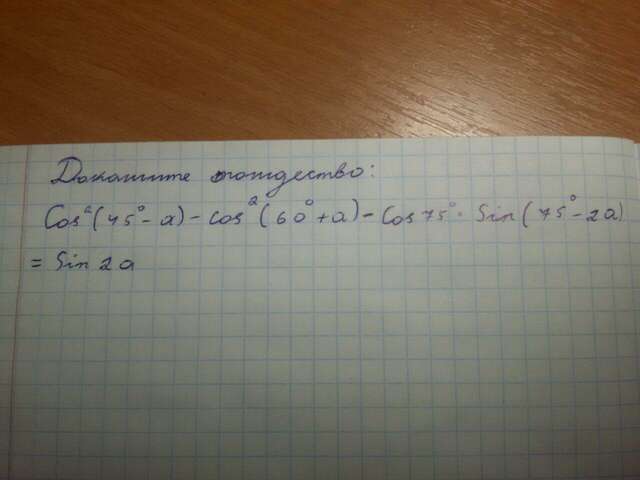 Докажите тождество:
Cos²(45°-a)-cos²(60°+a)-Cos75°·Sin(75°-2a)
= Sin2a